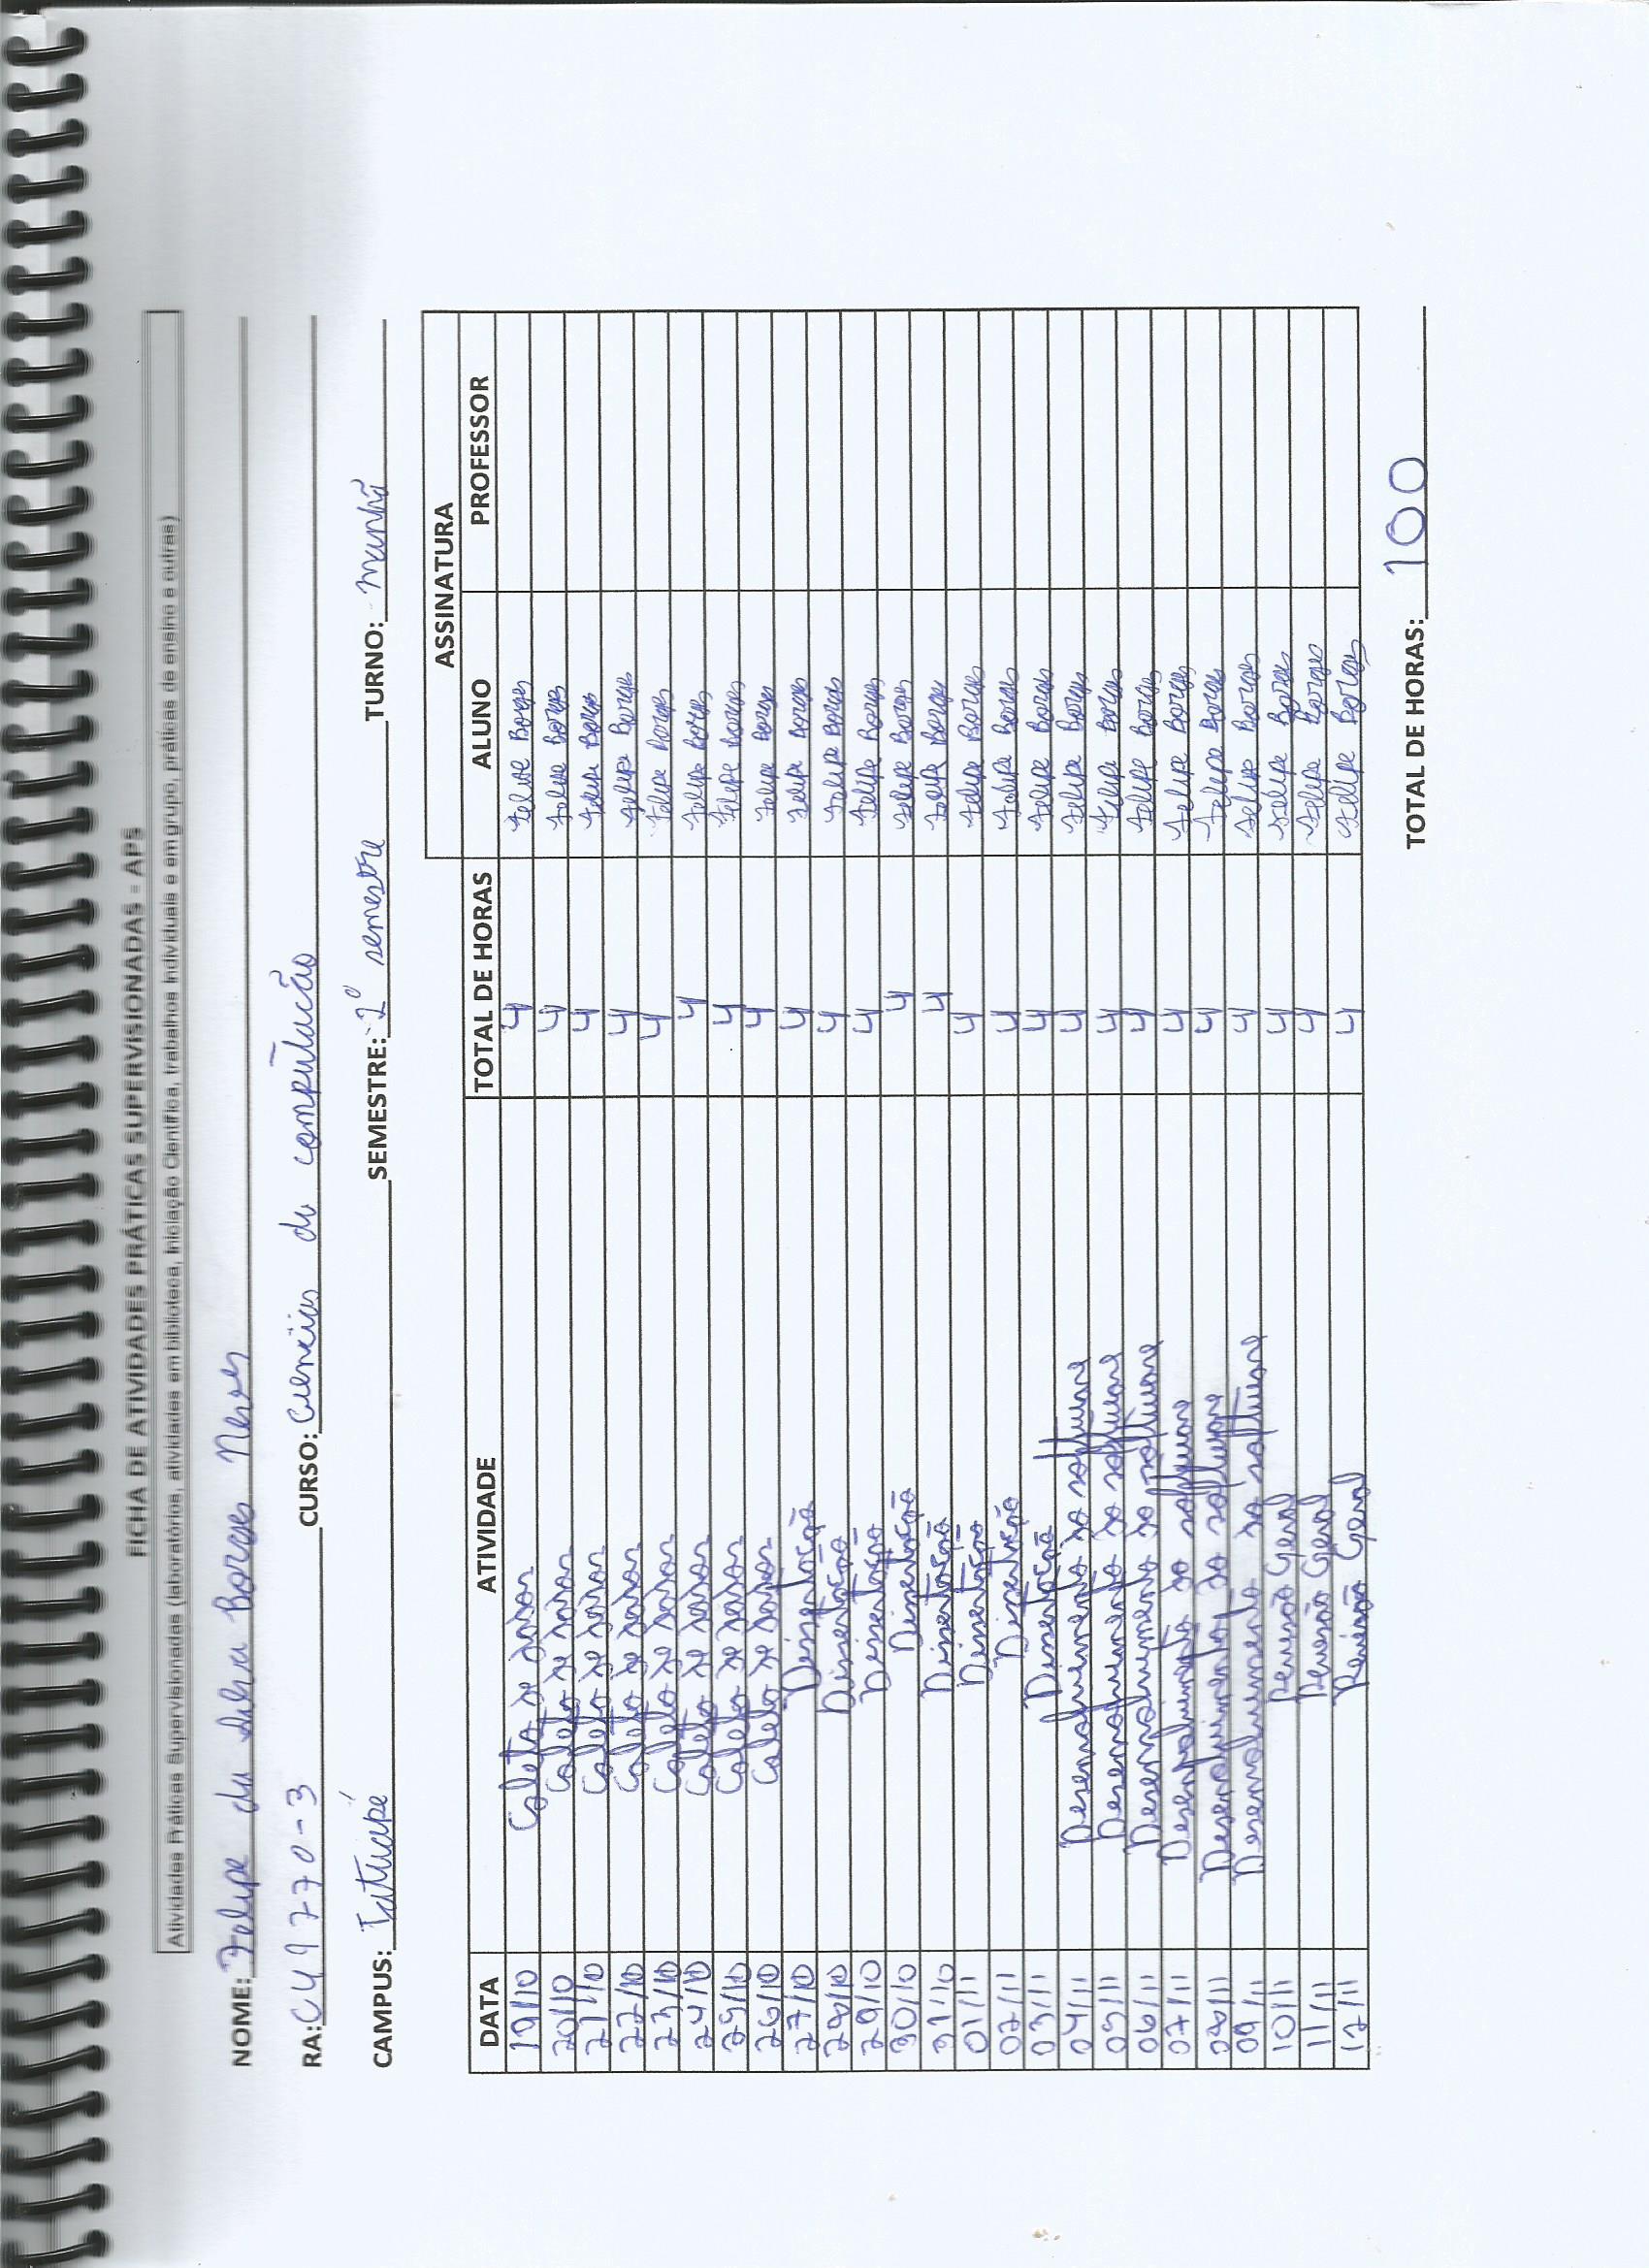 FICHA DE ATIVIDADES PRÁTICAS SUPERVISIONADAS - APS
Atividades Práticas Supervisionadas (laboratórios, atividades em biblioteca, Iniciação Científica, trabalhos individuais e em grupo, práticas de ensino e outras)
NOME: Felipe da Silva Borges Neves
RA: C49770-3 CURSO: Ciencias da computacão
CAMPUS: Tatuapé SEMESTRE: 2º semestre TURNO: Manhã
ASSINATURA
DATA ATIVIDADE TOTAL DE HORAS ALUNO PROFESSOR
19/10 Coleta de dados 4 Felipe Borges
20/10 Coleta de dados 4 Felipe Borges
21/10 Coleta de dados 4 Felipe Borges
22/10 Coleta de dados 4 Felipe Borges
23/10 Coleta de dados 4 Felipe Borges
24/10 Coleta de dados 4 Felipe Borges
25/10 Coleta de dados 4 Felipe Borges
26/10 Coleta de dados 4 Felipe Borges
27/10 Dissertação 4 Felipe Borges
28/10 Dissertação 4 Felipe Borges
29/10 Dissertação 4 Felipe Borges
30/10 Dissertação 4 Felipe Borges
31/10 Dissertação 4 Felipe Borges
01/11 Dissertação 4 Felipe Borges
02/11 Dissertação 4 Felipe Borges
03/11 Dissertação 4 Felipe Borges
04/11 Desenvolvimento do software 4 Felipe Borges
05/11 Desenvolvimento do software 4 Felipe Borges
06/11 Desenvolvimento do software 4 Felipe Borges
07/11 Desenvolvimento do software 4 Felipe Borges
08/11 Desenvolvimento do software 4 Felipe Borges
09/11 Desenvolvimento do software 4 Felipe Borges
10/11 Revisão Geral 4 Felipe Borges
11/11 Revisão Geral 4 Felipe Borges
12/11 Revisão Geral 4 Felipe Borges
TOTAL DE HORAS: 100